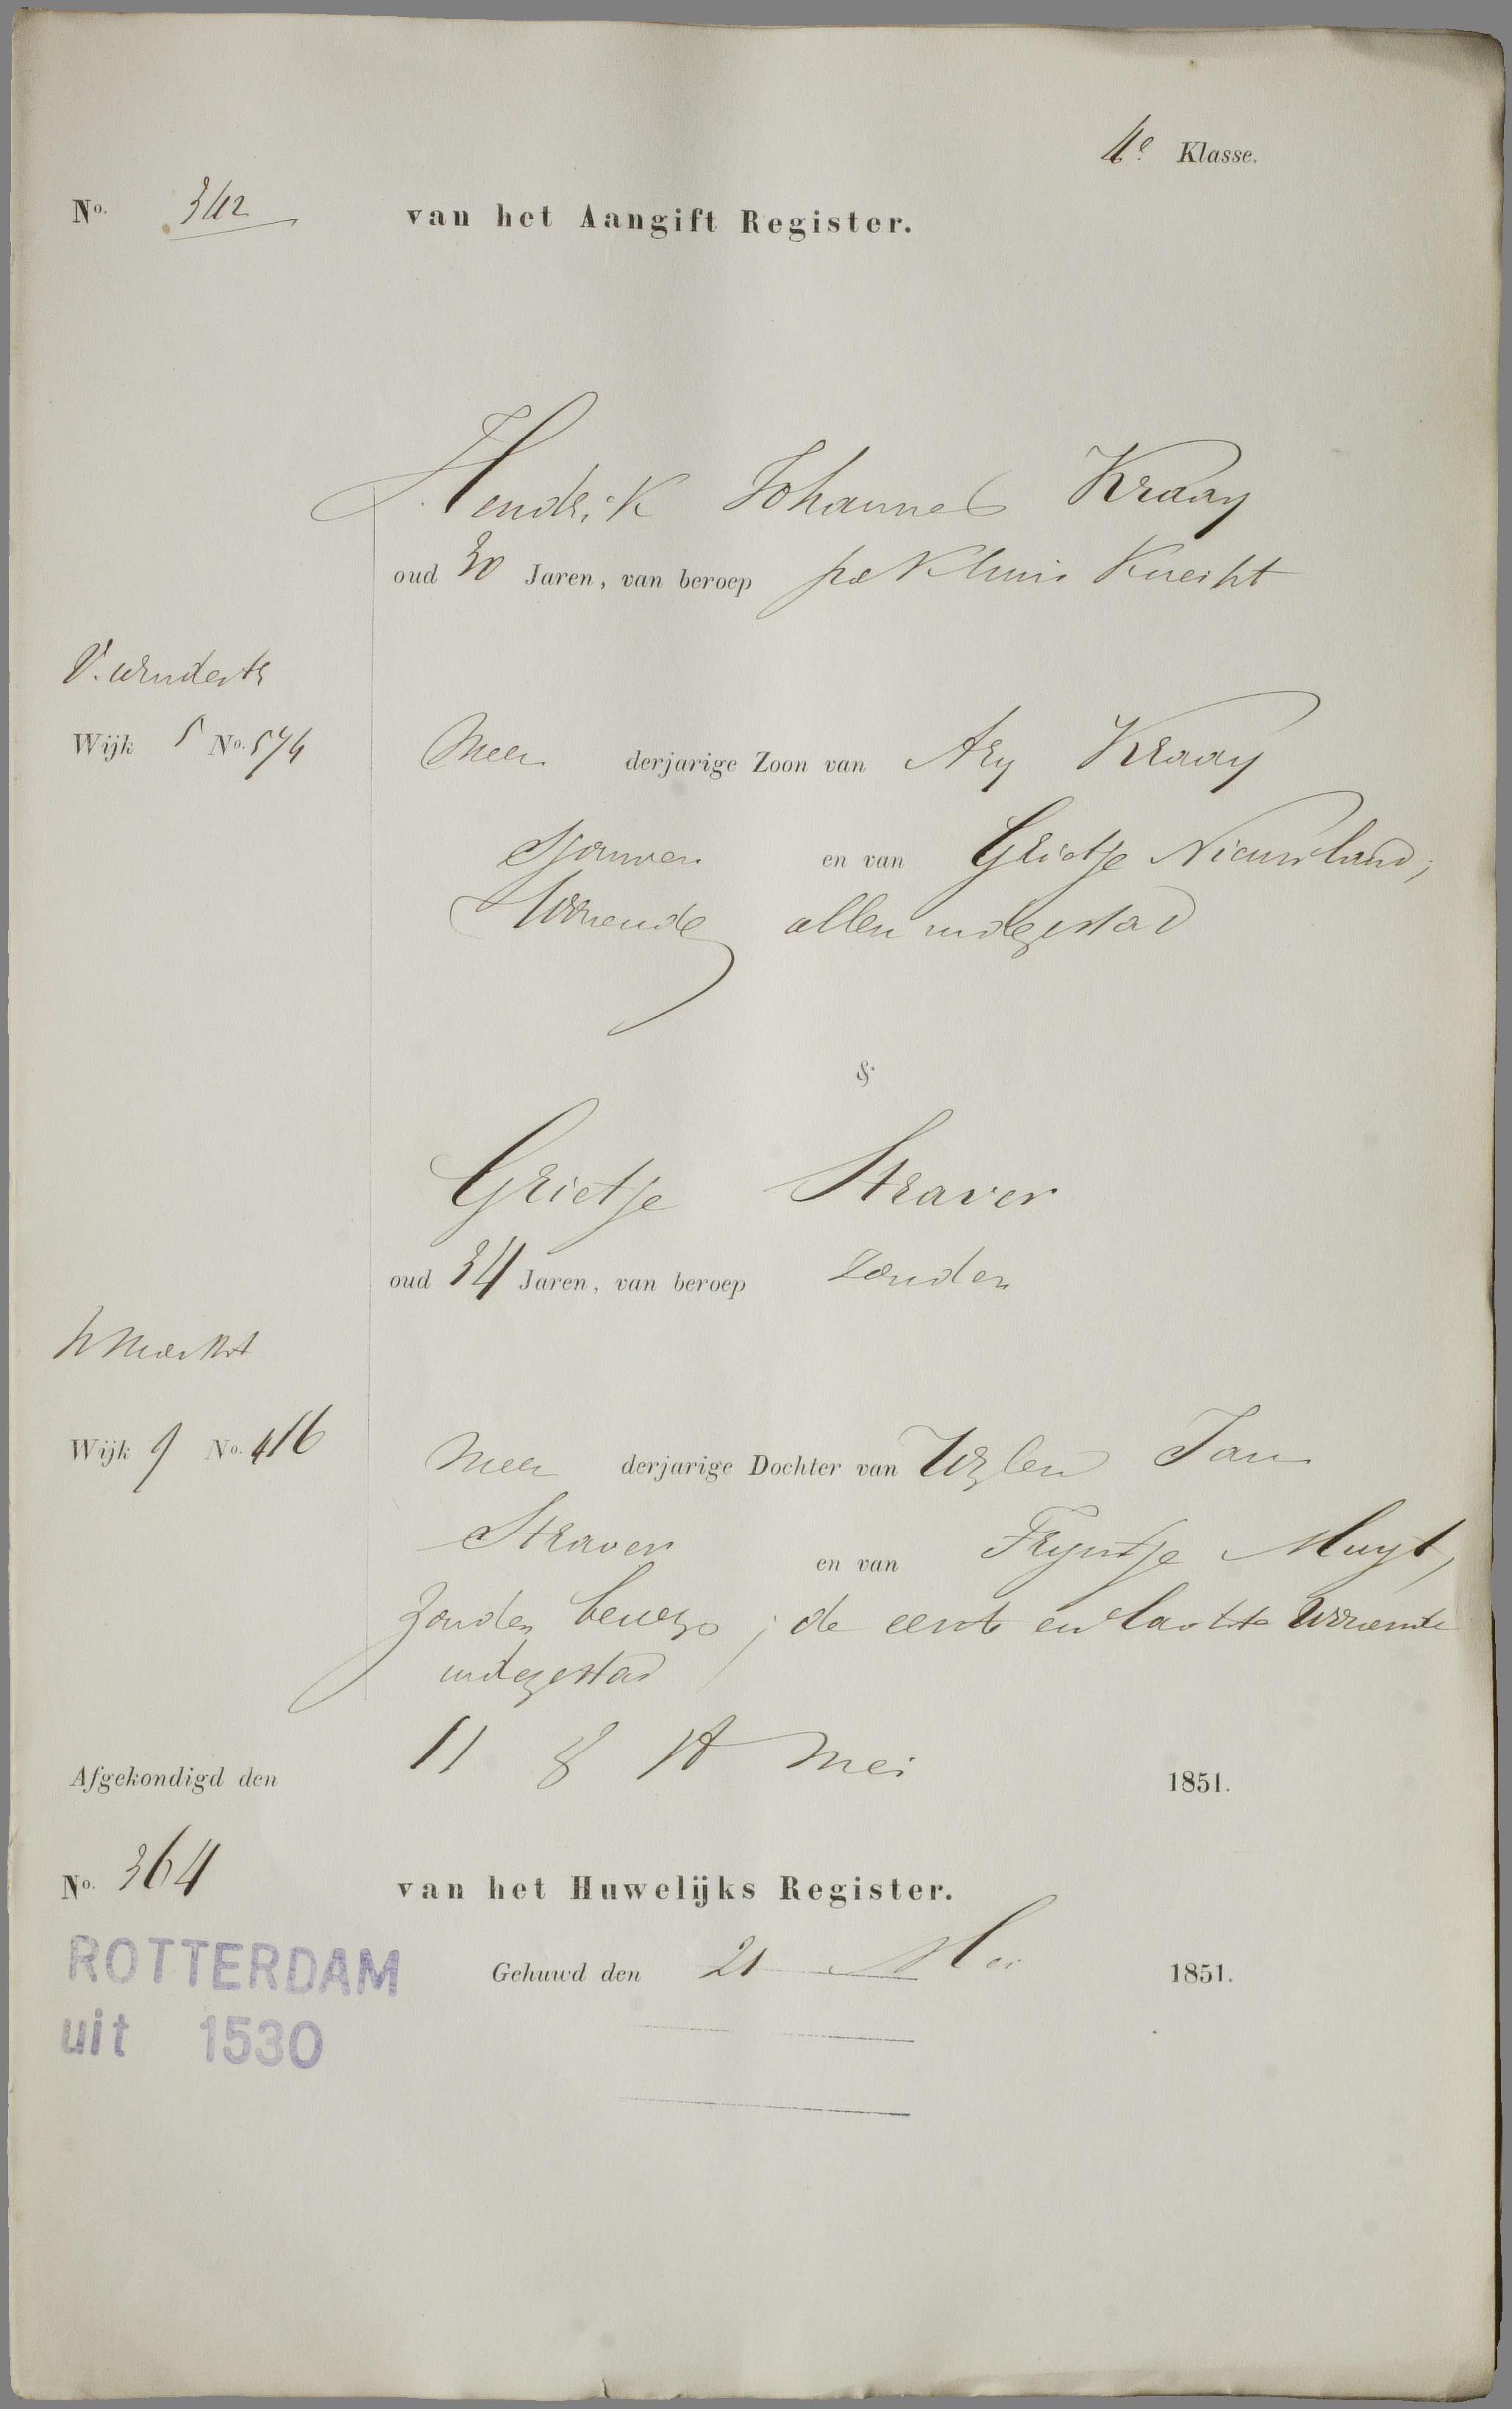 4e Klasse.
No. 342 van het Aangift Register.
Hendrik Johannes Kraay
oud 30 Jaren, van beroep pakhuis Knecht
Wijk 5 No. 574 Meer derjarige Zoon van Ary Kraay
Sjouwer en van Grietje Nieuwland,
Wonende allen indezestad
&
Grietje Straver
oud 34 Jaren, van beroep Zonder
Wijk 9 No. 416 Meer derjarige Dochter van Wylen Jan
Straver en van Fryntje Muyt,
Zonder beroep; de eerste en laatste Wonende
indezestad
Afgekondigd den 11 & 18 Mei 1851.
No. 364 van het Huwelijks Register.
ROTTERDAM
Gehuwd den 21 Mei 1851.
uit 1530